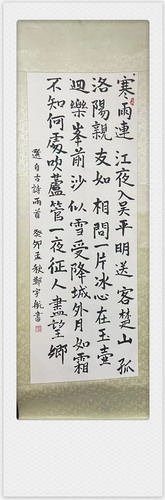 寒雨連江夜入吴平明送客楚山孤
洛陽親友如相問一片冰心在玉壺
迴樂峯前沙似雪受降城外月如霜
不知何處吹蘆管一夜征人盡望鄉
選自古詩兩首 癸卯孟秋鄭宇航書